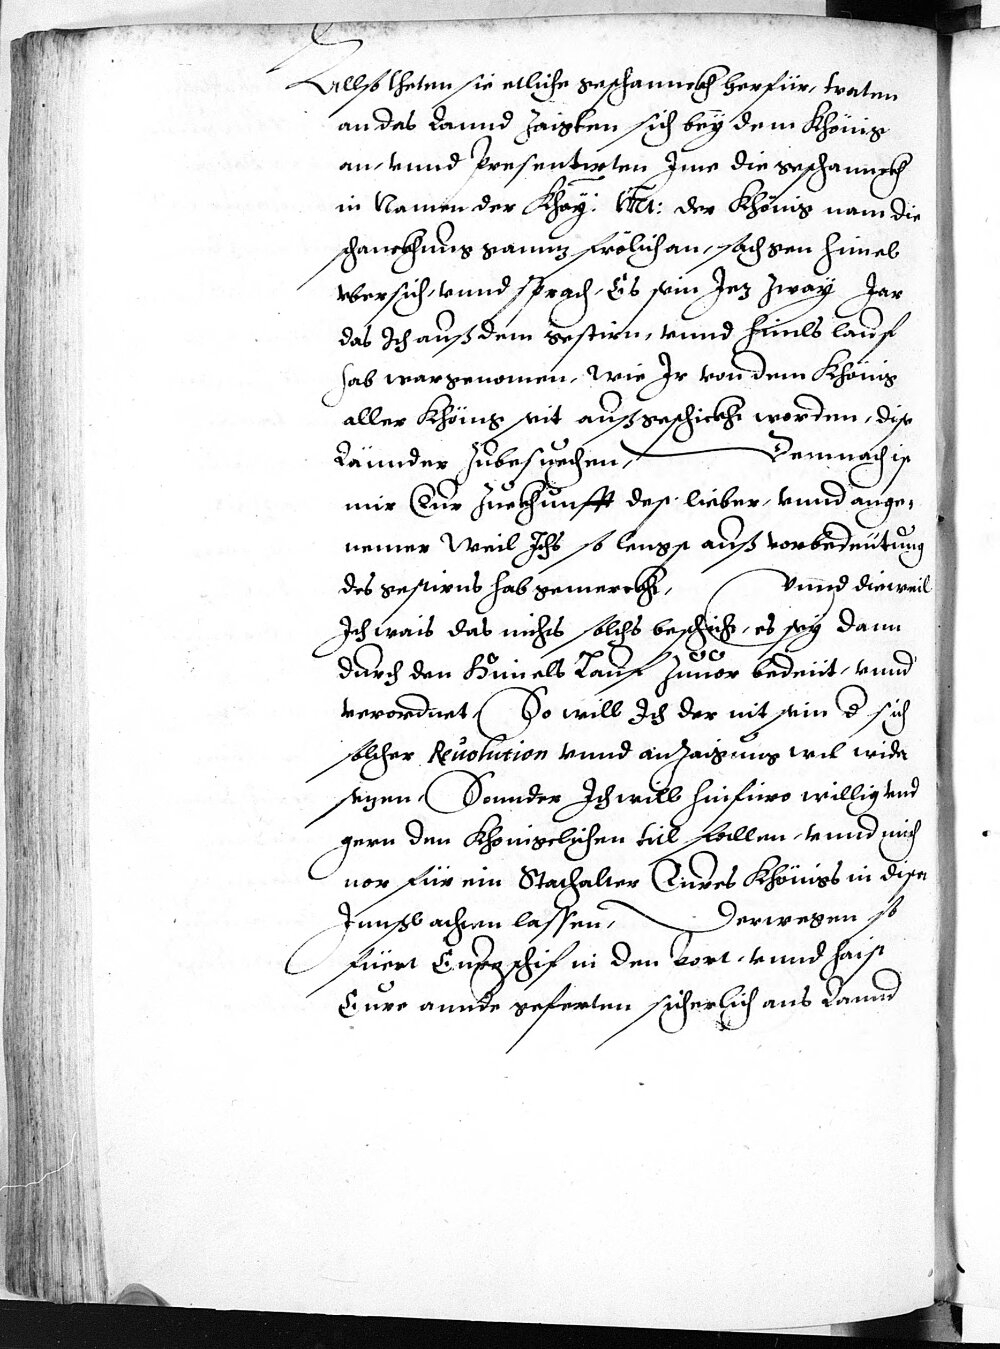 Allso theten sie etliche geschannckh herfür, traten
an das Lannd Zaigten sich bey dem Khönig
an, vnnd Presentirten Jme die geschannckh
in Namen der Khay: Mt: der Khönig nam die
schanckhung gannz frölich an, sach gen himel
vbersich, vnnd sprach, Es sein Jez zway Jar
das Ich auß dem gestirn, vnnd himls lauf
hab wargenomen, wie Jr von dem Khönig
aller Khönig seit außgeschickht worden, dise
Lännder Zubesuechen, Demnach ist
mir Eur Zuekhunfft dest lieber, vnnd ange„
nemer Weil Ichs so lengst auß vorbedeütung
des gestirns hab gemerckht, Vnnd dieweil
Ich wais das nichts solchs beschicht, es sey dann
durch den Himels Lauf Zuuor bedeüt, vnnd
verordnet, So will Ich der nit sein d sich
solcher Reuolution vnnd anZaigung wel wider
sezen, Sonnder Ich will hinfüro willig vnd
gern den Khöniglichen titl fallen, vnnd mich
nor für ein Stathalter Eures Khönigs in diser
Jnnßl achten lassen, Derwegen so
füert Eur schif in den Port, vnnd haist
Eure annde geferten sicherlich ans Lannd